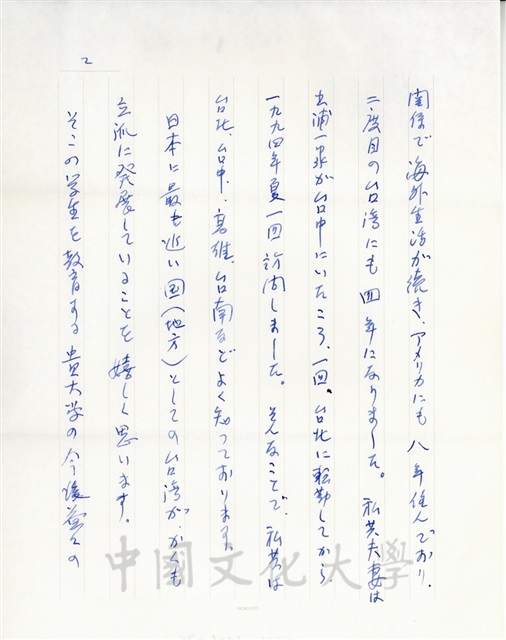 2
関係で海外生活が続き、アメリカにも八年住んでおり、
二度目の台湾にも四年になりました。私共夫妻は
土浦一家が台中にいたころ、一回、台北に転勤してから
一九九四年夏一回訪問しました。そんなことで、私共は
台北、台中、高雄、台南などよく知っております。
日本に最も近い国(地方)としての台湾が、かくも
立派に発展していることを嬉しく思います。
そこの学生を教育する貴大学の今後益々の
中國文化大學